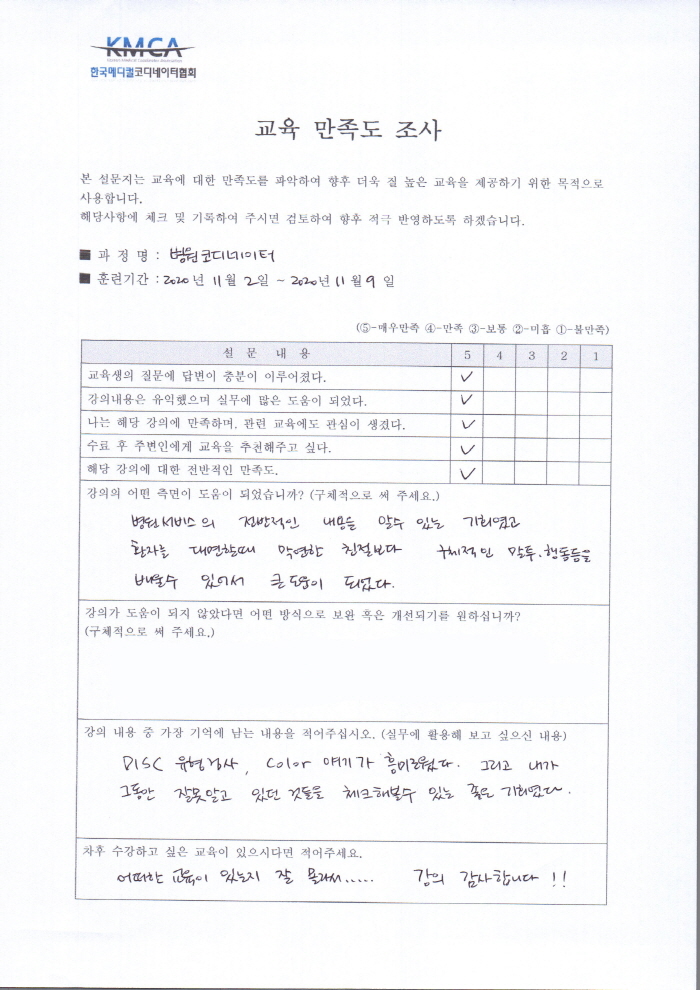 KMCA
한국메디컬코디네이터협회
교육 만족도 조사
본 설문지는 교육에 대한 만족도를 파악하여 향후 더욱 질 높은 교육을 제공하기 위한 목적으로
사용합니다.
해당사항에 체크 및 기록하여 주시면 검토하여 향후 적극 반영하도록 하겠습니다.
■ 과 정 명 : 병원코디네이터
■ 훈련기간 : 2020년 11월 2일 ~ 2020년 11월 9일
(⑤-매우만족 ④-만족 ③-보통 ②-미흡 ①-불만족)
설 문 내 용 5 4 3 2 1
교육생의 질문에 답변이 충분이 이루어졌다. ✓
강의내용은 유익했으며 실무에 많은 도움이 되었다. ✓
나는 해당 강의에 만족하며, 관련 교육에도 관심이 생겼다. ✓
수료 후 주변인에게 교육을 추천해주고 싶다. ✓
해당 강의에 대한 전반적인 만족도. ✓
강의의 어떤 측면이 도움이 되었습니까? (구체적으로 써 주세요.)
병원서비스의 전반적인 내용을 알수 있는 기회였고
환자를 대면할때 막연한 친절보다 구체적인 말투, 행동등을
배울수 있어서 큰 도움이 되었다.
강의가 도움이 되지 않았다면 어떤 방식으로 보완 혹은 개선되기를 원하십니까?
(구체적으로 써 주세요.)
강의 내용 중 가장 기억에 남는 내용을 적어주십시오. (실무에 활용해 보고 싶으신 내용)
DISC 유형검사, Color 얘기가 흥미로웠다. 그리고 내가
그동안 잘못알고 있던 것들을 체크해볼수 있는 좋은 기회였다.
차후 수강하고 싶은 교육이 있으시다면 적어주세요.
어떠한 교육이 있는지 잘 몰라서..... 강의 감사합니다!!